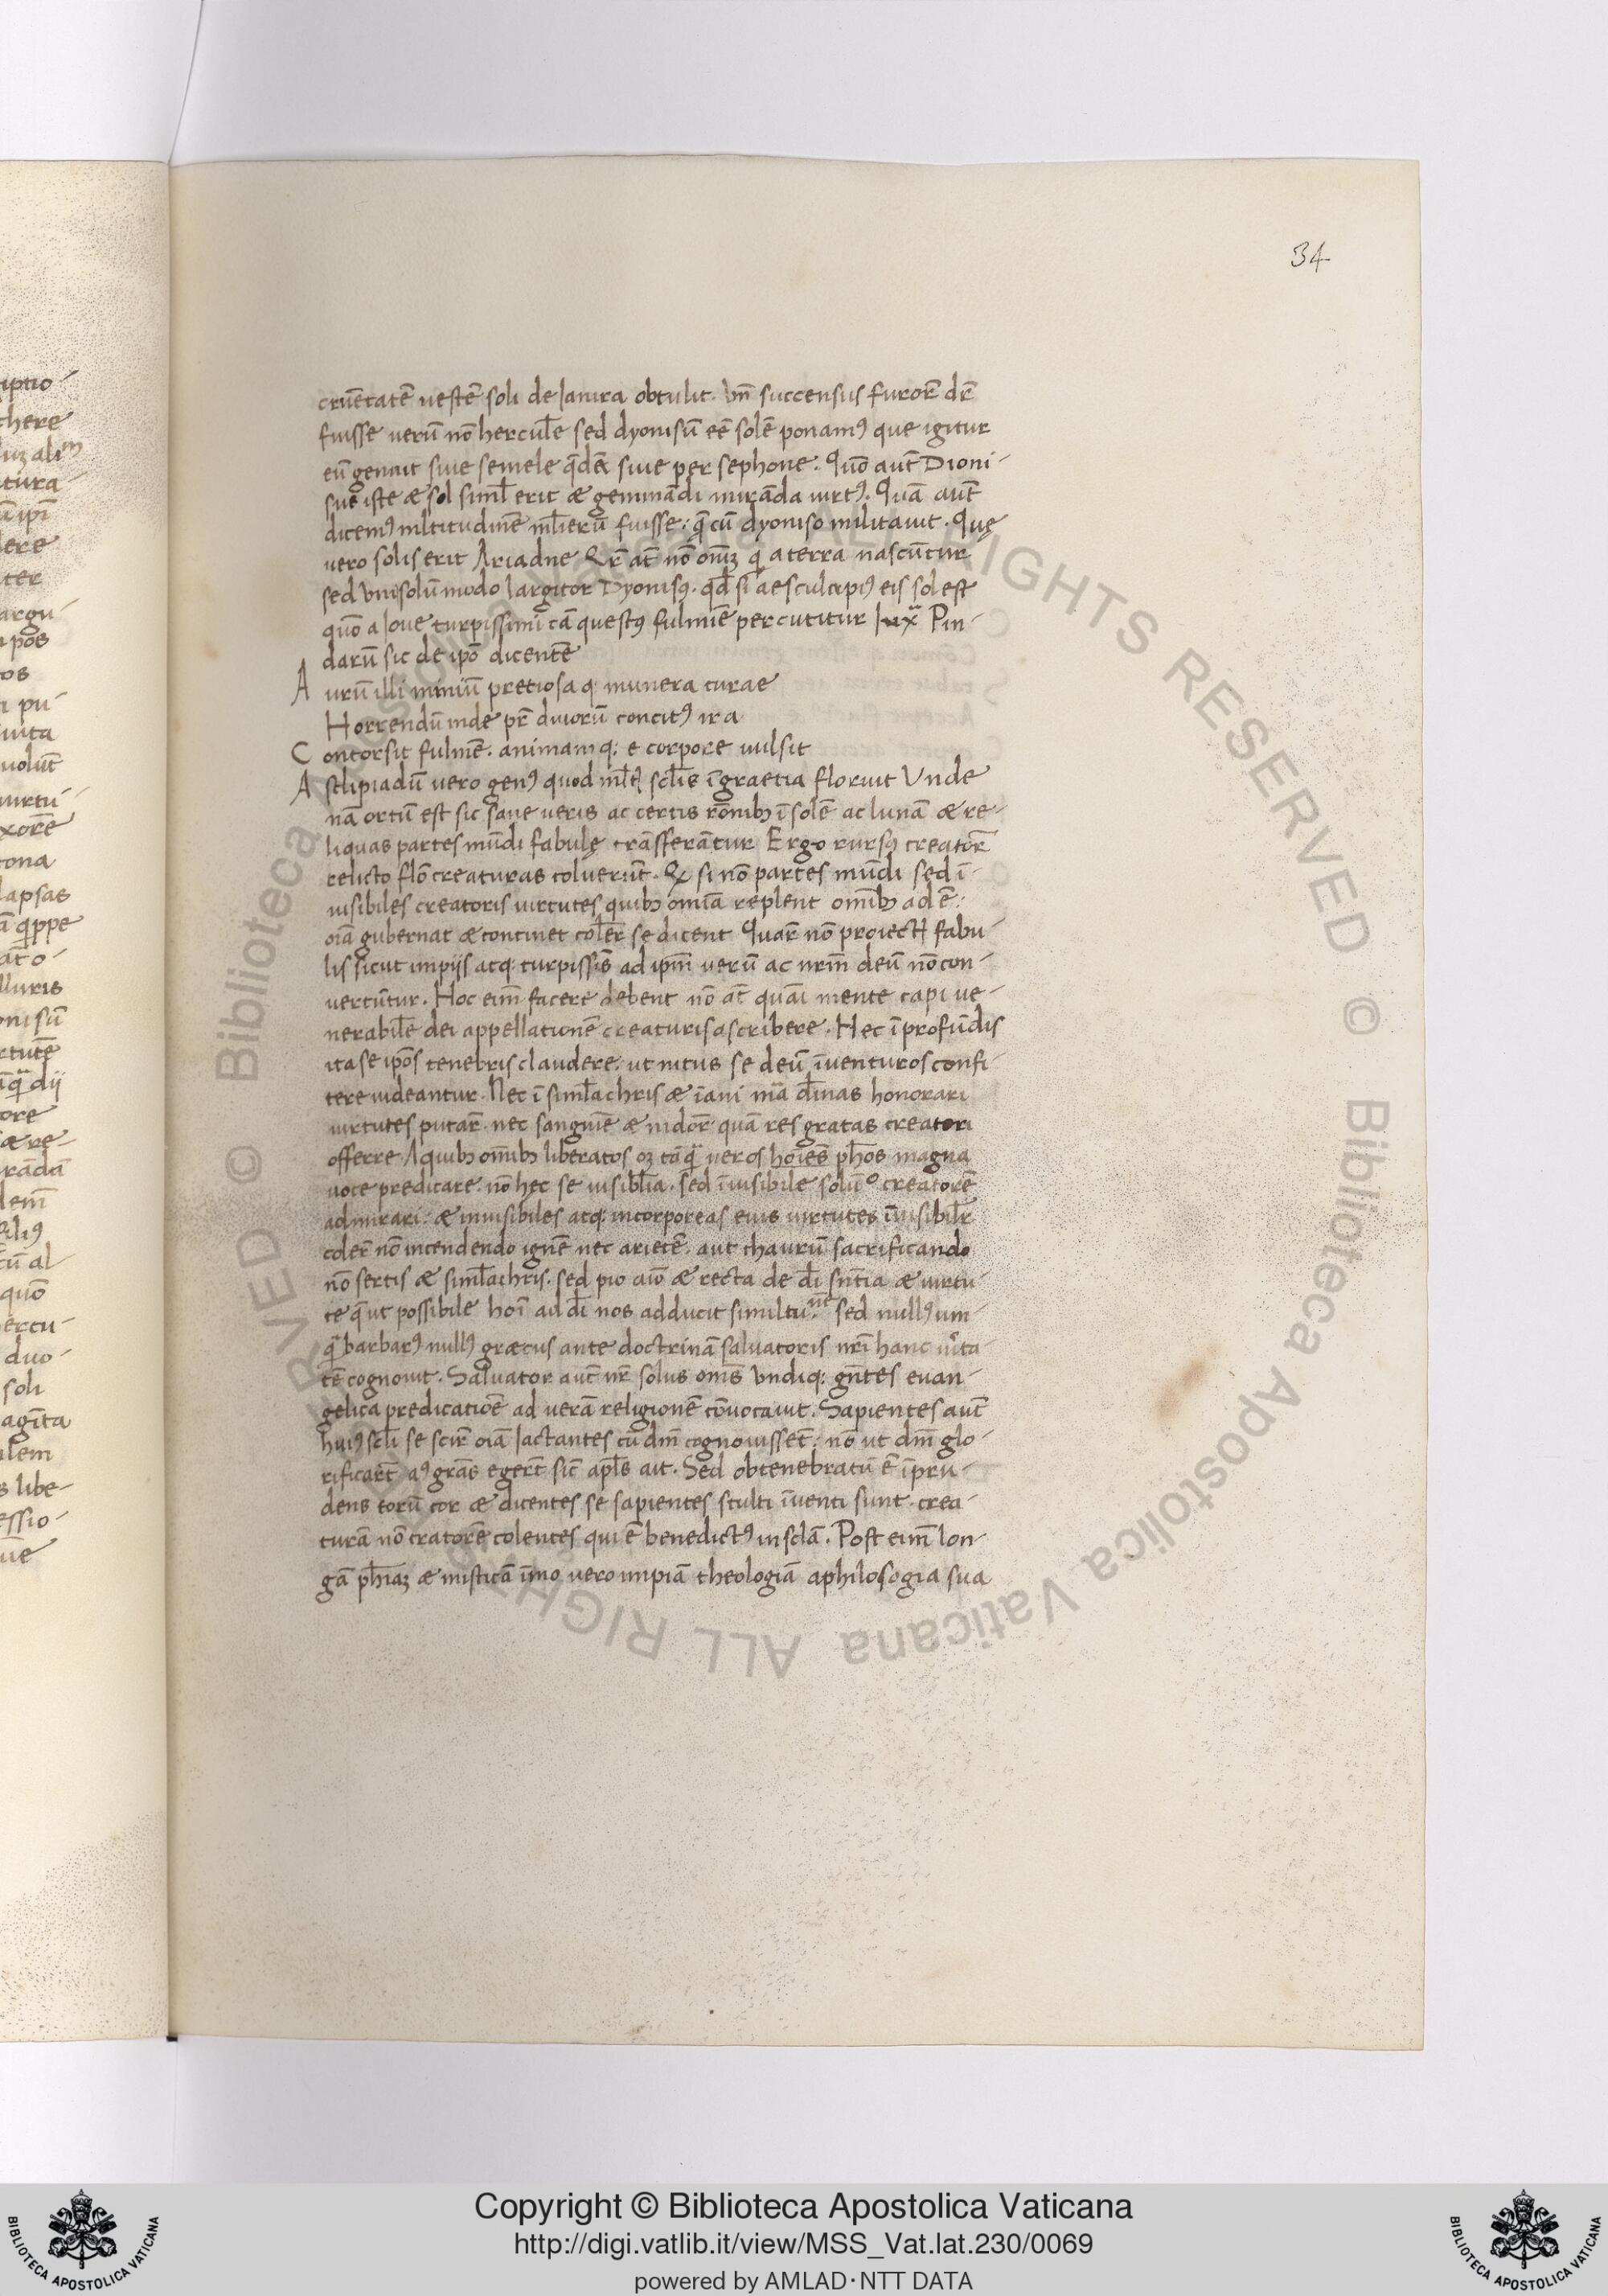 34
cruẽtatẽ uestẽ soli deIanira obtulit. Vñ succensus furorẽ dr̃
fuisse uerũ nõ hercul̃e sed dyonisũ eẽ solẽ ponamꝰ que igitur
eũ genuit siue semele siue per sephone. Quõ aut̃ Dioni-
sus iste & sol siml̃ erit & geminãdi mirãda uirtꝰ. Quã aut̃
dicemꝰ ml̃titudinẽ ml̃ierũ fuisse: q̃ cũ dyoniso militauit. Quę
uero solis erit Ariadne & at̃ nõ om̃ꝫ q̃ a terra nascũtur
sed Vnisolũmodo largitor Dyonisꝰ. qd̃ si aesculapiꝰ eis sol est
quõ a Ioue turpissimi cã questꝰ fulmiẽ percutitur Iuxᵃ Pin-
darũ sic de ip̃o dicentẽ
A urũ illi miniũ pretiosa q: munera curae
Horrendũ inde pr̃ diuorũ concitꝰ ira
C ontorsit fulmẽ. animam q: e corpore uulsit
A sclipiadũ uero genꝰ quod ml̃tꝭ scl̃is ĩ graetia floruit Vnde
nã ortũ est sic sane ueris ac certis rõnibꝫ ĩ solẽ ac lunã & re-
liquas partes mũdi fabulę trãsferãtur Ergo rursꝰ creatorẽ
relicto flõ creaturas coluerũt. & si nõ partes mũdi sed ĩ-
uisibiles creatoris uirtutes quibꝫ om̃ia replent om̃ibꝫ adẽ:
oĩa gubernat & continet coler̃ se dicent Quar̃ nõ proiectꝭ fabu-
lis sicut impijs atq: turpissĩs ad ip̃m uerũ ac nr̃m deũ nõ con-
uertũtur. Hoc eim̃ facere debent nõ at̃ quãi mente capi ue-
nerabil̃e dei appellationẽ creaturis ascribere. Nec ĩ profũdis
ita se ip̃os tenebris claudere: ut intus se deũ ĩuenturos confi-
tere uideantur. Nec ĩ siml̃achris & ĩani mᵃ̃ diĩnas honorari
uirtutes putar̃. nec sanguiẽ & nidor̃ quã res gratas creatori
offerre A quibꝫ om̃ibꝫ liberatos oꝫ tãq̃ ueros hoĩes ph̃os magna
uoce predicare. nõ hęc se uisibl̃ia. sed ĩuisibile solũ creatorẽ
admirari: & inuisibiles atq: incorporeas eius uirtutes ĩuisibilr̃
coler̃ nõ incendendo ignẽ nec arietẽ. aut thaurũ sacrificando
nõ sertis & siml̃achris. sed pio aĩo & recta de dĩ sñtia & uirtu-
te q̃ ut possibile hoĩ ad dĩ nos adducit similtuᵈⁿᵉ sed nullꝰ um-
q̃ barbarꝰ nullꝰ graecus ante doctrinã saluatoris nr̃i hanc uĩta-
tẽ cognouit. Saluator aut̃ nr̃ solus om̃s Vndiq: gñtes euan-
gelica predicatiõẽ ad uerã religionẽ cõuocauit. Sapientes aut̃
huiꝰ scl̃i se scir̃ oĩa Iactantes cũ dm̃ cognouissẽt: nõ ut dm̃ glo-
rificar̃t aꝰ grãs eger̃t sic̃ apl̃s ait. Sed obtenebratũ ẽ ĩpru-
dens eorũ cor & dicentes se sapientes stulti ĩuenti sunt. crea-
turã nõ cratorẽ colentes qui ẽ benedictꝰ in scl̃a. Post eim̃ lon-
gã ph̃iaꝫ & misticã ĩmo uero impiã theologiã a philosogia sua
Copyright © Biblioteca Apostolica Vaticana
http://digi.vatlib.it/view/MSS_Vat.lat.230/0069
powered by AMLAD·NTT DATA